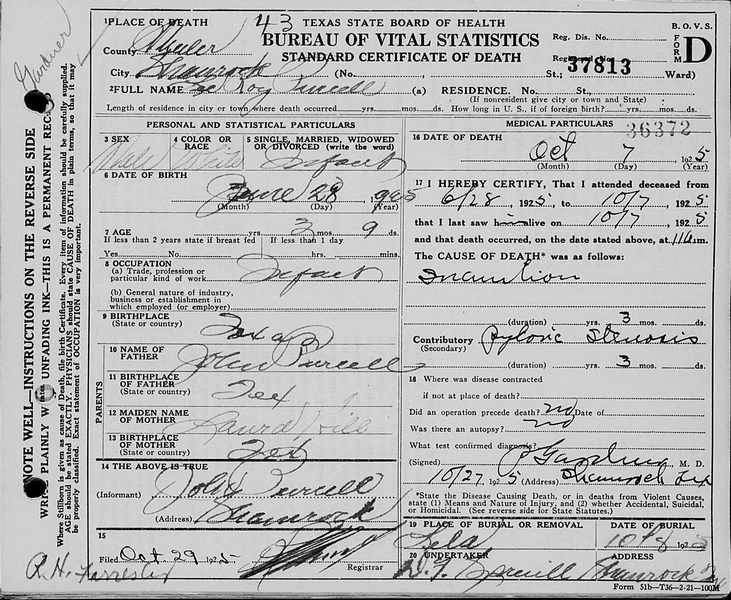 43
TEXAS STATE BOARD OF HEALTH
B. O. V. S.
FORM D
BUREAU OF VITAL STATISTICS
STANDARD CERTIFICATE OF DEATH
1 PLACE OF DEATH
County Wheeler
City Shamrock (No. St., Ward)
Reg. Dis. No.
Registered No. 37813
2 FULL NAME Roy Purcell (a) RESIDENCE. No. St.,
(If nonresident give city or town and State)
Length of residence in city or town where death occurred yrs. mos. ds. How long in U. S., if of foreign birth? yrs. mos. ds.
PERSONAL AND STATISTICAL PARTICULARS
3 SEX Male
4 COLOR or RACE White
5 SINGLE, MARRIED, WIDOWED or DIVORCED (write the word) Infant
6 DATE OF BIRTH
June 28 1925
(Month) (Day) (Year)
7 AGE yrs 3 mos. 9 ds.
If less than 2 years state if breast fed If less than 1 day
Yes No. hrs. mins.
8 OCCUPATION
(a) Trade, profession or particular kind of work Infant
(b) General nature of industry, business or establishment in which employed (or employer)
9 BIRTHPLACE (State or country) Texas
PARENTS
10 NAME OF FATHER John Purcell
11 BIRTHPLACE OF FATHER (State or country) Tex
12 MAIDEN NAME OF MOTHER Laura Hill
13 BIRTHPLACE OF MOTHER (State or country) Tex
14 THE ABOVE IS TRUE
(Informant) John Purcell
(Address) Shamrock
15
Filed Oct 29 1925
Registrar
MEDICAL PARTICULARS
36372
16 DATE OF DEATH
Oct 7 1925
(Month) (Day) (Year)
17 I HEREBY CERTIFY, That I attended deceased from
6/28 1925, to 10/7 1925
that I last saw him alive on 10/7, 1925
and that death occurred, on the date stated above, at m.
The CAUSE OF DEATH* was as follows:
Inanition
(duration) yrs. 3 mos. ds.
Contributory (Secondary) Pyloric Stenosis
(duration) yrs. 3 mos. ds.
18 Where was disease contracted
if not at place of death?
Did an operation precede death? no Date of
Was there an autopsy? no
What test confirmed diagnosis?
(Signed) M. D.
10/27 1925 (Address) Shamrock Tex
*State the Disease Causing Death, or in deaths from Violent Causes, state (1) Means and Nature of Injury, and (2) whether Accidental, Suicidal, or Homicidal. (See reverse side for State Statutes.)
19 PLACE OF BURIAL OR REMOVAL
DATE OF BURIAL
Lela 10/8 1925
20 UNDERTAKER
ADDRESS
Shamrock Tex
Form 51b—T36—2-21—100M
NOTE WELL—INSTRUCTIONS ON THE REVERSE SIDE
WRITE PLAINLY WITH UNFADING INK—THIS IS A PERMANENT RECORD
Where Stillborn is given as cause of Death, file birth Certificate. Every item of information should be carefully supplied. AGE should be stated EXACTLY. PHYSICIANS should state CAUSE OF DEATH in plain terms, so that it may be properly classified. Exact statement of OCCUPATION is very important.
R. H. Forrester